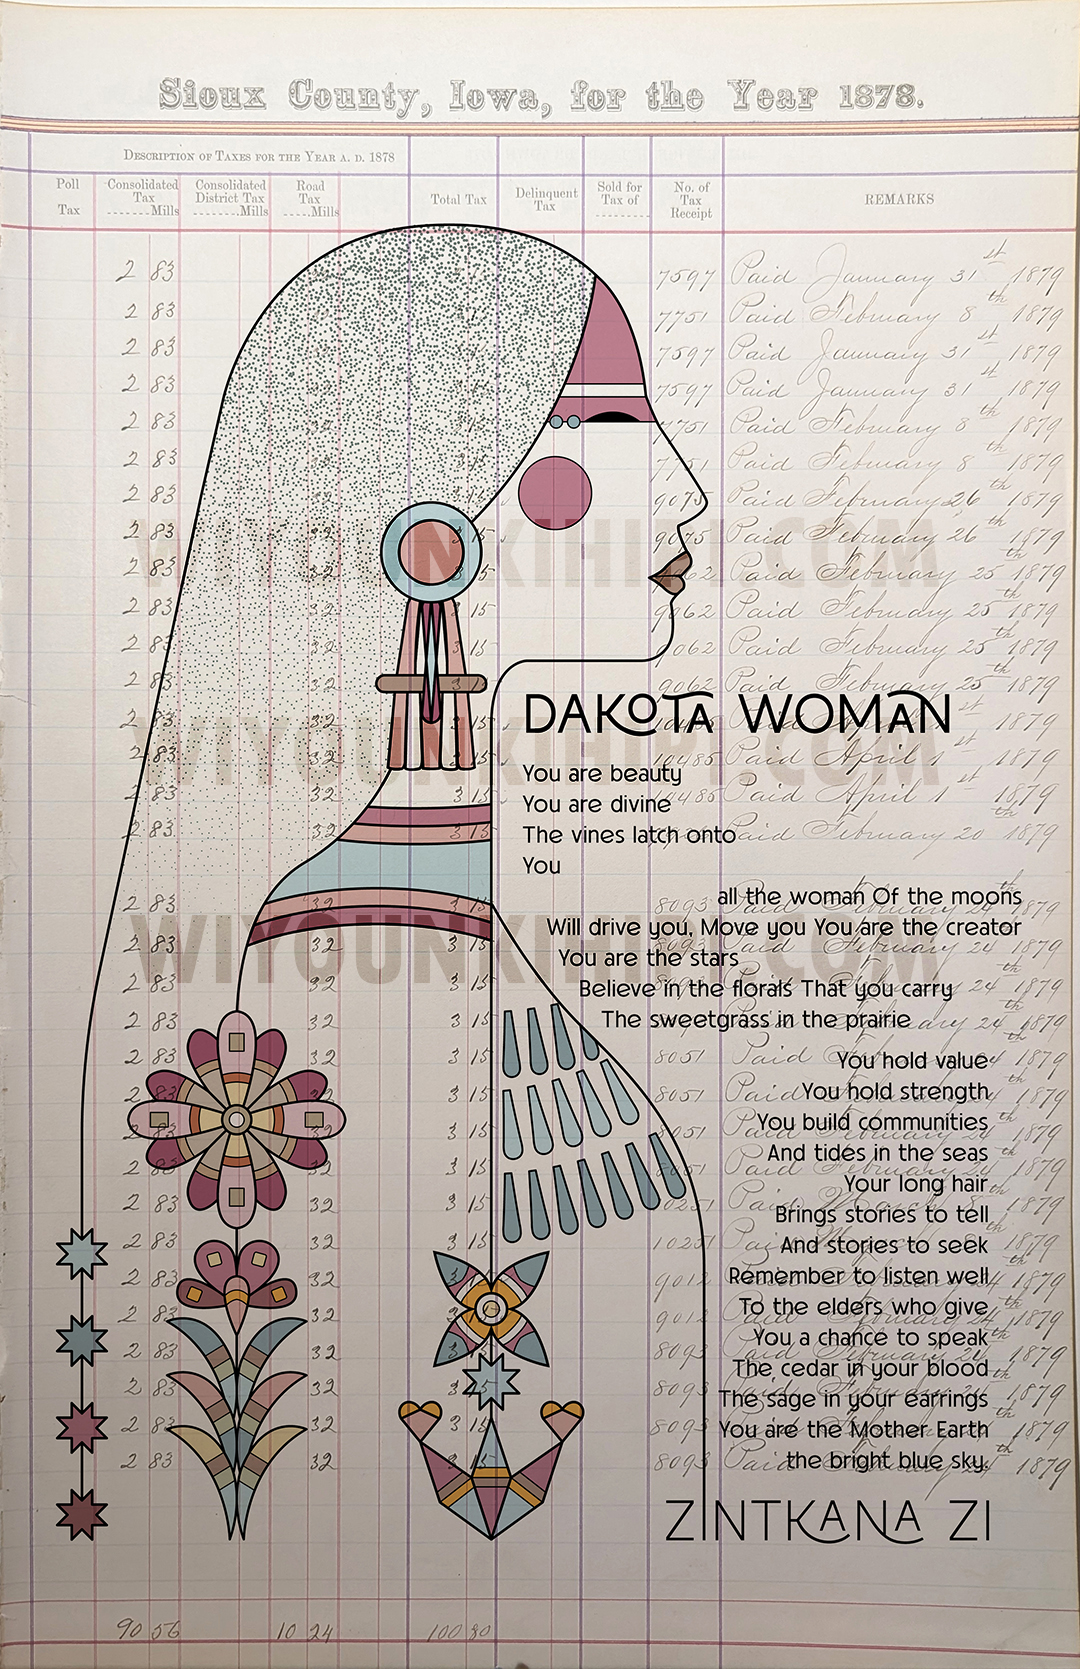 Sioux County, Iowa, for the Year 1878.
DESCRIPTION OF TAXES FOR THE YEAR A. D. 1878
Poll Tax
Consolidated Tax ........Mills
Consolidated District Tax .........Mills
Road Tax ......Mills
Total Tax
Delinquent Tax
Sold for Tax of ............
No. of Tax Receipt
REMARKS
2 83 7597 Paid January 31st 1879
2 83 7751 Paid February 8th 1879
2 83 7597 Paid January 31st 1879
2 83 7597 Paid January 31st 1879
2 83 7751 Paid February 8th 1879
2 83 7751 Paid February 8th 1879
2 83 9075 Paid February 26 1879
2 83 9075 Paid February 26th 1879
WIYOUNKIHIPI.COM
2 83 9062 Paid February 25th 1879
2 83 32 3 15 9062 Paid February 25th 1879
2 83 3 15 9062 Paid February 25th 1879
2 83 32 3 15 9062 Paid February 25th 1879
DAKOTA WOMAN
2 83 32 3 15 10485 1879
WIYOUNKIHIPI.COM
2 83 32 3 15 10485 Paid April 1st 1879
You are beauty
2 83 32 3 15 10485 Paid April 1st 1879
You are divine
2 83 32 3 15 Paid February 20th 1879
The vines latch onto
You
2 83 32 3 15 8093 24th 1879
all the woman Of the moons
Will drive you, Move you You are the creator
WIYOUNKIHIPI.COM
2 83 32 3 15 8093 Paid February 24 1879
You are the stars
2 83 32 3 15 24th 1879
Believe in the florals That you carry
2 83 32 3 15 24th 1879
The sweetgrass in the prairie
2 83 32 3 15 8051 Paid February 24 1879
You hold value
2 83 32 3 15 8051 24th 1879
You hold strength
2 83 32 3 15 8051 Paid February 24th 1879
You build communities
2 83 32 3 15 8051 Paid February 24 1879
And tides in the seas
Your long hair
2 83 32 3 15 10251 Paid 8th 1879
Brings stories to tell
2 83 32 3 15 10251 8th 1879
And stories to seek
2 83 32 9012 24th 1879
Remember to listen well
2 83 32 9012 24th 1879
To the elders who give
2 83 32 8093 Paid 24 1879
You a chance to speak
The cedar in your blood
2 83 32 3 15 8093 24th 1879
The sage in your earrings
2 83 32 3 15 8093 24th 1879
You are the Mother Earth
2 83 32 3 15 8093 24th 1879
the bright blue sky
ZINTKANA ZI
90 56 10 24 100 80